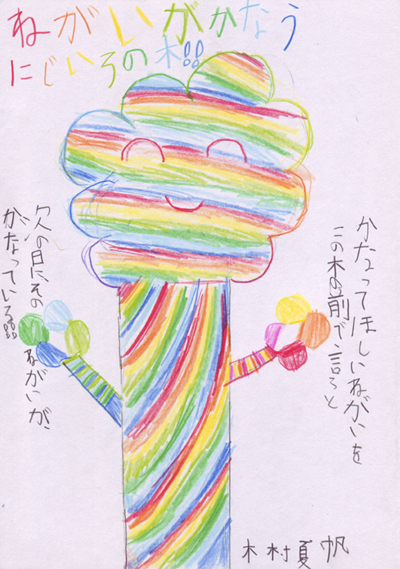 ねがいがかなう
にじいろの木!!
かなってほしいねがいを
この木の前で言うと
次の日にその
ねがいが、
かなっている!!!
木村夏帆